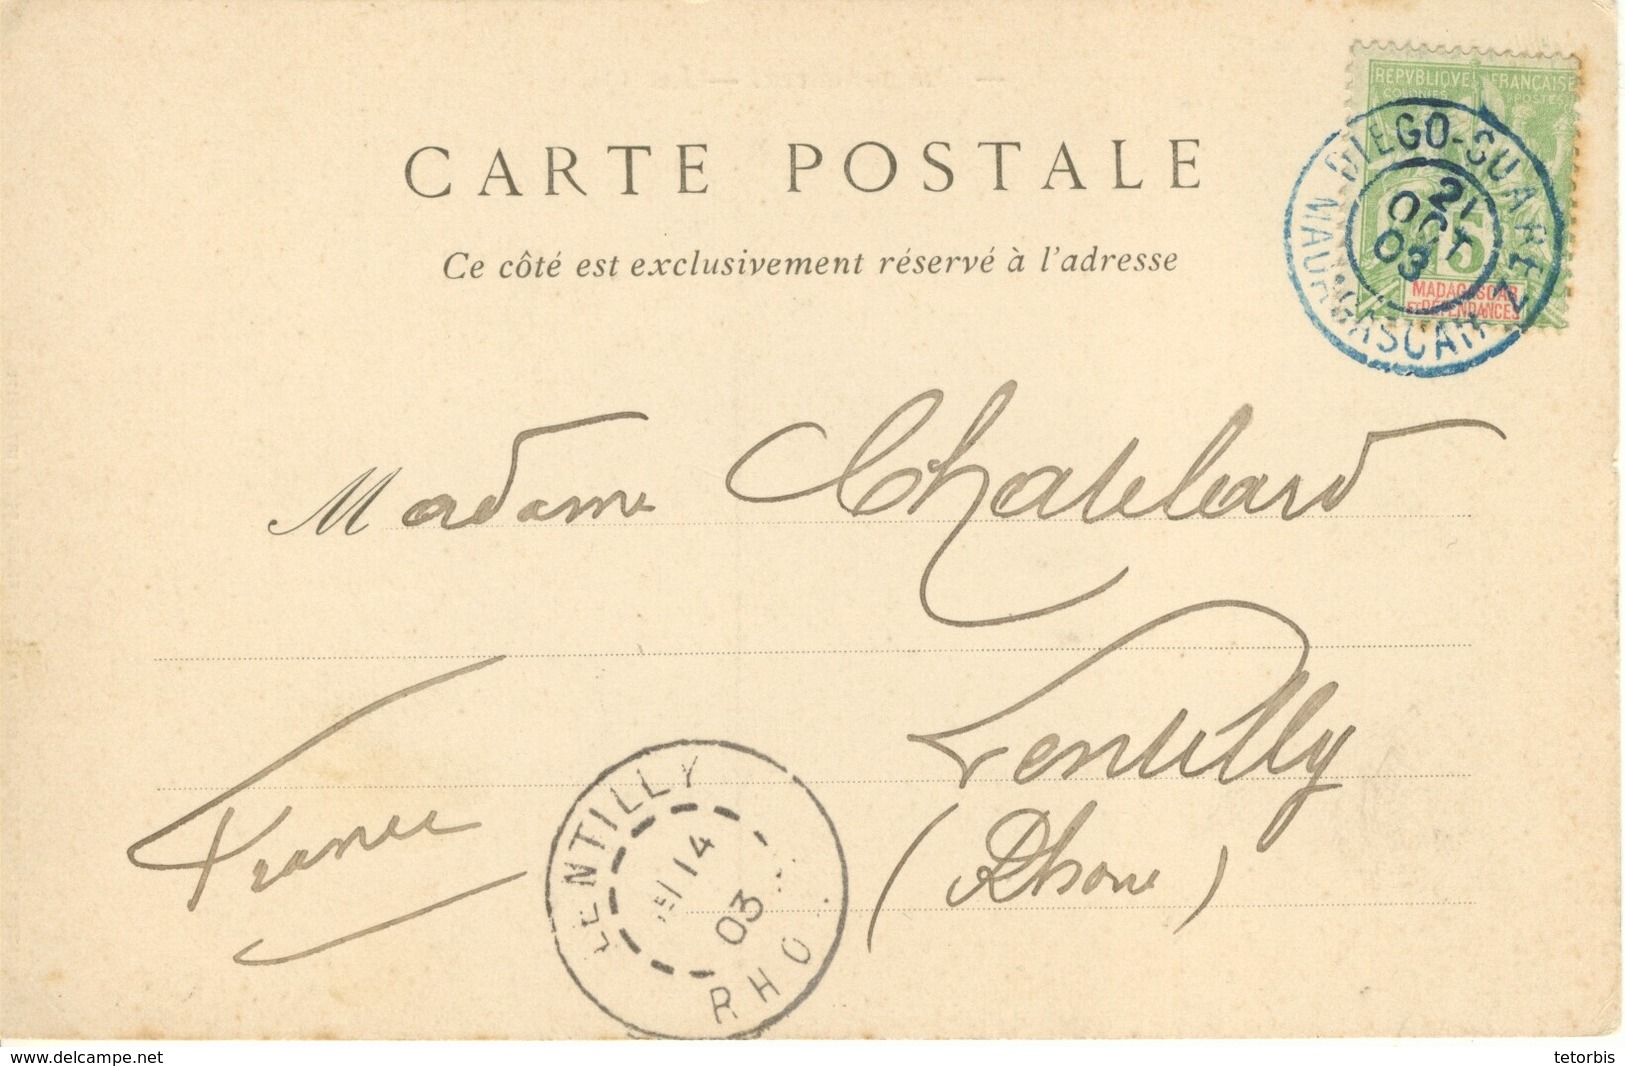 REPVBLIQUE FRANÇAISE
COLONIES POSTES
5
MADAGASCAR
ET DÉPENDANCES
DIEGO-SUAREZ
21
OCT
03
MADAGASCAR
CARTE POSTALE
Ce côté est exclusivement réservé à l'adresse
Madame Chatelard
Lentilly
(Rhône)
France
LENTILLY
14
03
RHO
www.delcampe.net
tetorbis